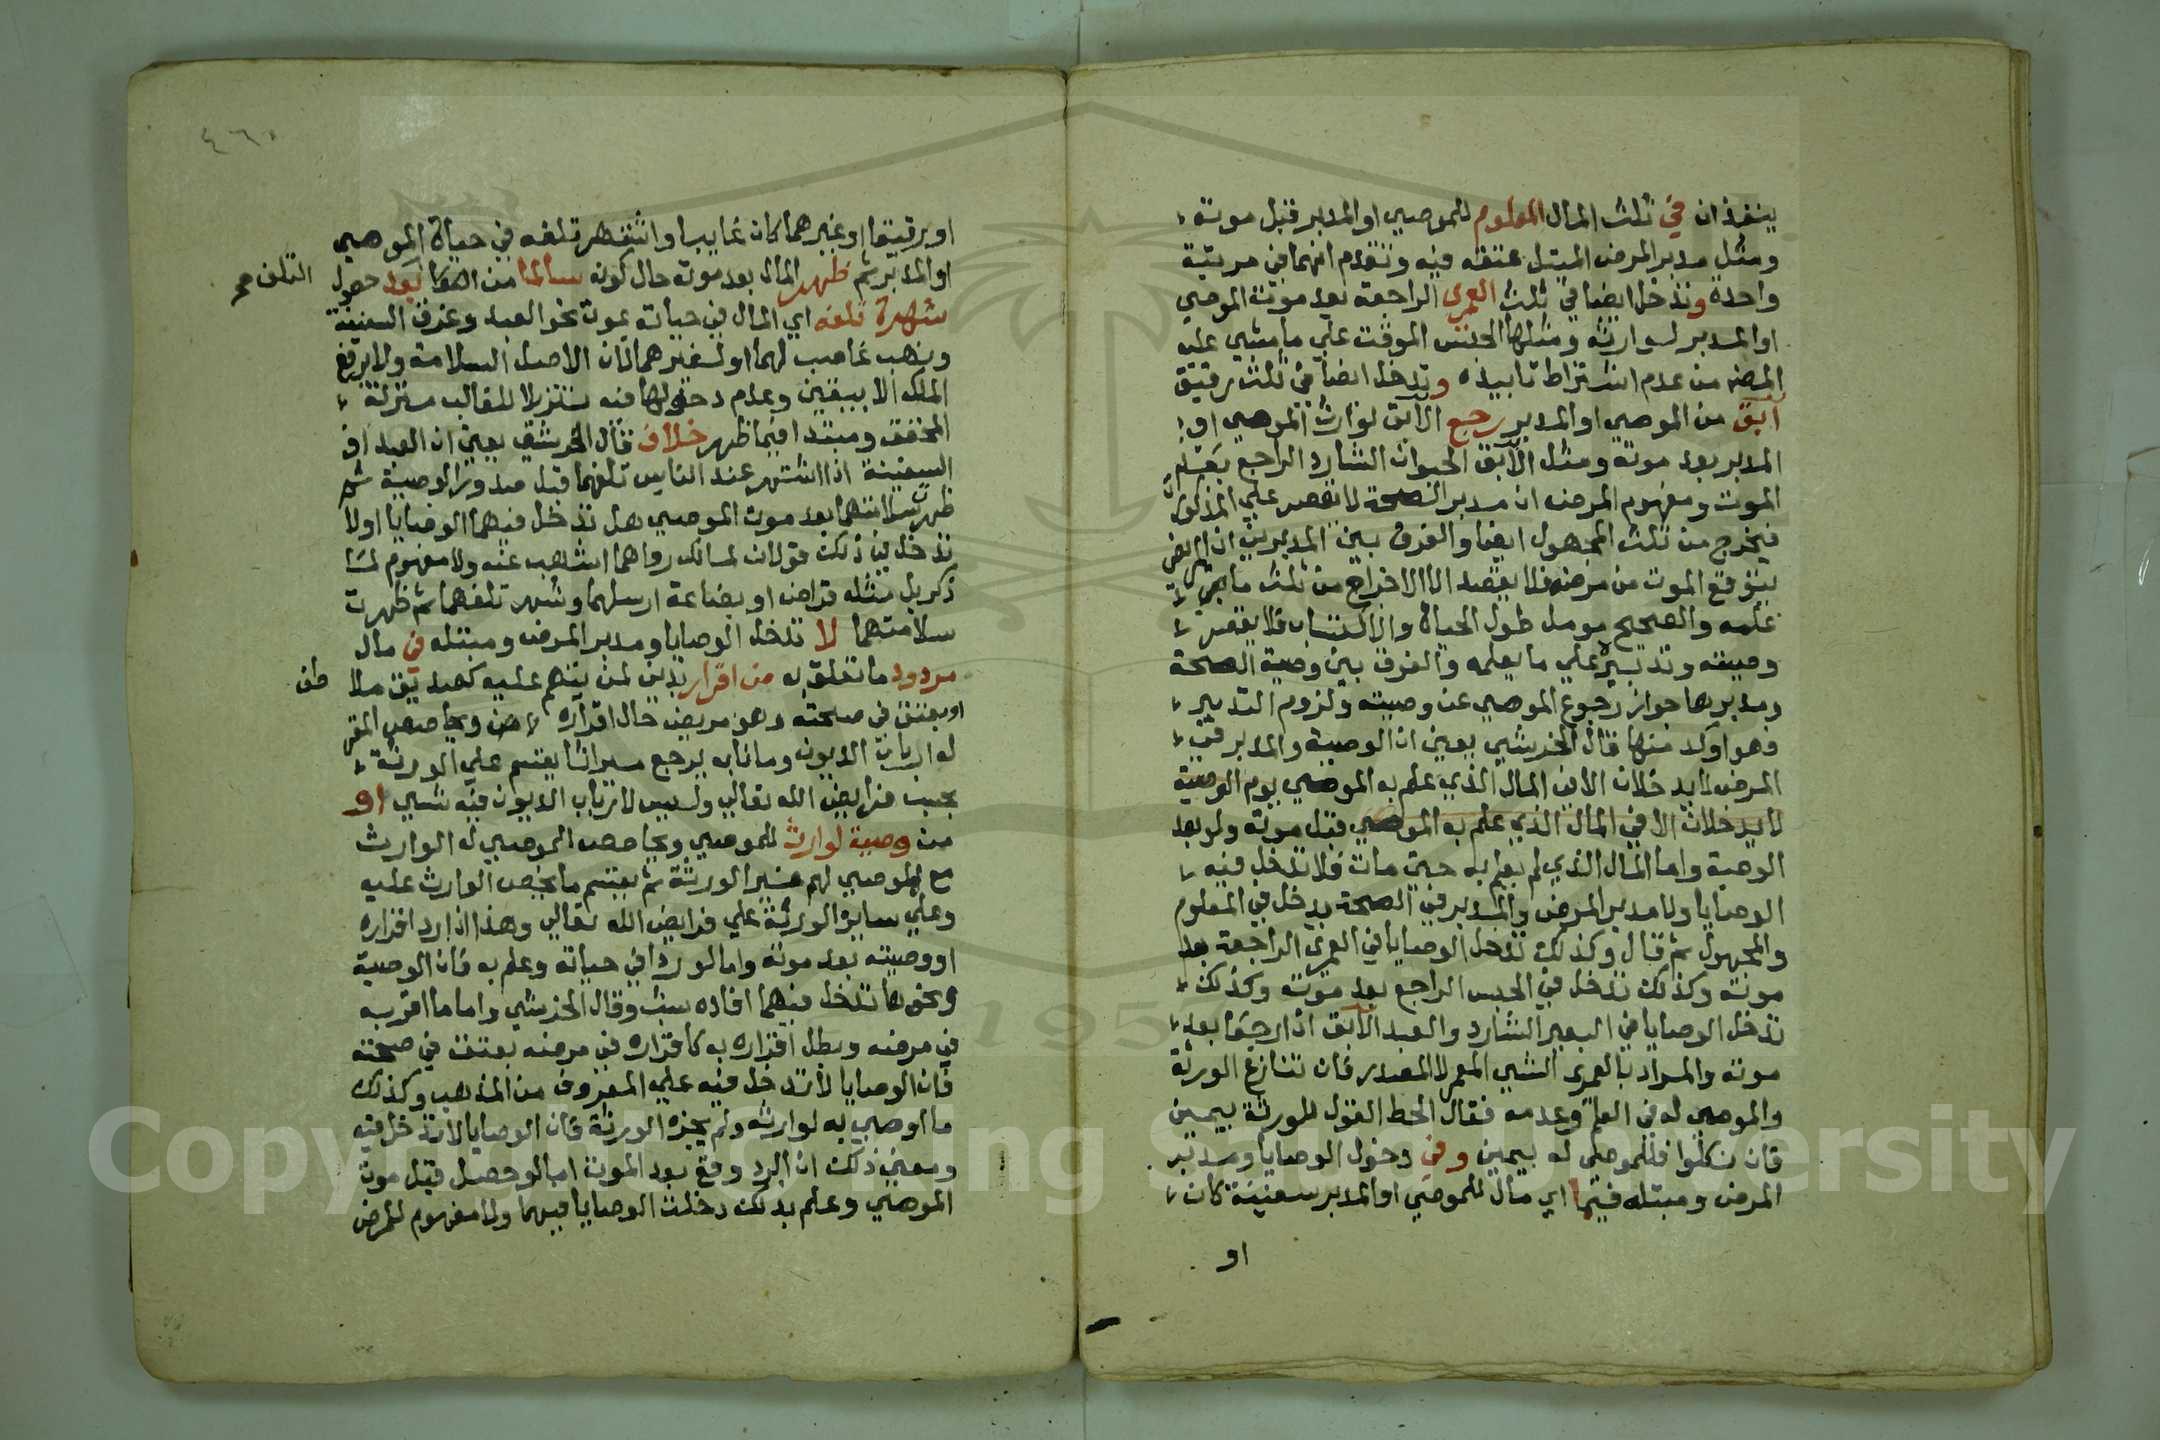 ينفذان في ثلث المال المعلوم للموصي او المدبر قبل موته
ومثل مدبر المرض المبتل عتقه فيه وتقدم انهما في مرتبة
واحدة وتدخل ايضا في ثلث العمري الراجعة بعد موته الموصي
او المدبر لوارثه ومثلها الحبس الموقت علي ما مشي عليه
المص من عدم اشتراط تابيده وتدخل ايضا في ثلث رقيق
آبق من الموصي او المدبر رجع الآبق لوارث الموصي او
المدبر بعد موته ومثل الآبق الحيوان الشارد الراجع
الموت ومفهوم المرض ان مدبر الصحة لا تقصر علي المذكور
فيخرج من ثلث المجهول ايضا والفرق بين المدبرين ان المريض
يتوقع الموت من مرضه فلا يقصد الا الاخراج من ثلث ما
علمه والصحيح مومل طول الحياة والاكتساب فلا يقصر
وصيته وتدبيره علي ما يعلمه والفرق بين وصية الصحة
ومدبرها جواز رجوع الموصي عن وصيته ولزوم التدبير
فهو اوكد منها قال الخرشي يعني ان الوصية والمدبر في
المرض لا يدخلان الا في المال الذي علم به الموصي يوم الوصية
لا يدخلان الا في المال الذي علم به الموصي قبل موته ولو بعد
الوصية واما المال الذي لم يعلم به حتي مات فلا تدخل فيه
الوصايا ولا مدبر المرض والمدبر في الصحة يدخل في المعلوم
والمجهول ثم قال وكذلك تدخل الوصايا في العمري الراجعة بعد
موته وكذلك تدخل في الحبس الراجع بعد موته وكذلك
تدخل الوصايا في البعير الشارد والعبد الآبق اذا رجعا بعد
موته والمراد بالعمري الشي المعمر لا المصدر فان تنازع الورثة
والموصي له في العلم وعدمه فقال الحط القول للورثة بيمين
فان نكلوا فللموصي له بيمين وفي دخول الوصايا ومدبر
المرض ومبتله فيما اي مال للموصي او المدبر سفينة كان
او
٤٦٠
او رقيقا او غيرهما كان غايبا واشتهر تلفه في حياة الموصي
او المدبر ثم ظهر المال بعد موته حال كونه سالما من بعد حصول
التلف صح
شهرة تلفه اي المال في حياته بموت نحو العبد وغرق السفينة
ونهب غاصب لهما او لغيرهما لان الاصل السلامة ولا يرفع
الملك الا بيقين وعدم دخولها فيه تنزيلا للغالب منزلة
المحقق ومبتدا فيما ظهر خلاف قال الخرشي يعني ان العبد او
السفينة اذا اشتهر عند الناس تلفهما قبل صدور الوصية ثم
ظهرت سلامتهما بعد موت الموصي هل تدخل فيهما الوصايا او لا
تدخل في ذلك قولان لمالك رواهما اشهب عنه ولا مفهوم لما
ذكر بل مثله قراض او بضاعة ارسلهما وشهر تلفهما ثم ظهرت
سلامتهما لا تدخل الوصايا ومدبر المرض ومبتله في مال
مردود ما تعلق به من اقرار بدين لمن يتهم عليه كصديق ملا
طف
او بعتق في صحته وهو مريض حال اقراره ويحاصص المقر
له ارباب الديون وما نابه يرجع ميراثا يقسم علي الورثة
بحسب فرايض الله تعالي وليس لارباب الديون فيه شي او
من وصية لوارث للموصي ويحاصص الموصي له الوارث
مع الموصي لهم غير الورثة ثم يقسم ما يخص الوارث عليه
وعلي ساير الورثة علي فرايض الله تعالي وهذا اذا رد اقراره
او وصيته بعد موته واما لو رد في حياته وعلم به فان الوصية
ونحوها تدخل فيهما افاده شب وقال الخرشي واما ما اقر به
في مرضه وبطل اقراره به كاقراره في مرضه بعتق في صحته
فان الوصايا لا تدخل فيه علي المعروف من المذهب وكذلك
ما اوصي به لوارثه ولم يجزه الورثة فان الوصايا لا تدخل فيه
ومعني ذلك ان الرد وقع بعد الموت اما لو حصل قبل موت
الموصي وعلم بذلك دخلت الوصايا فيهما ولا مفهوم للمرض
Copyright © King Saud University
195